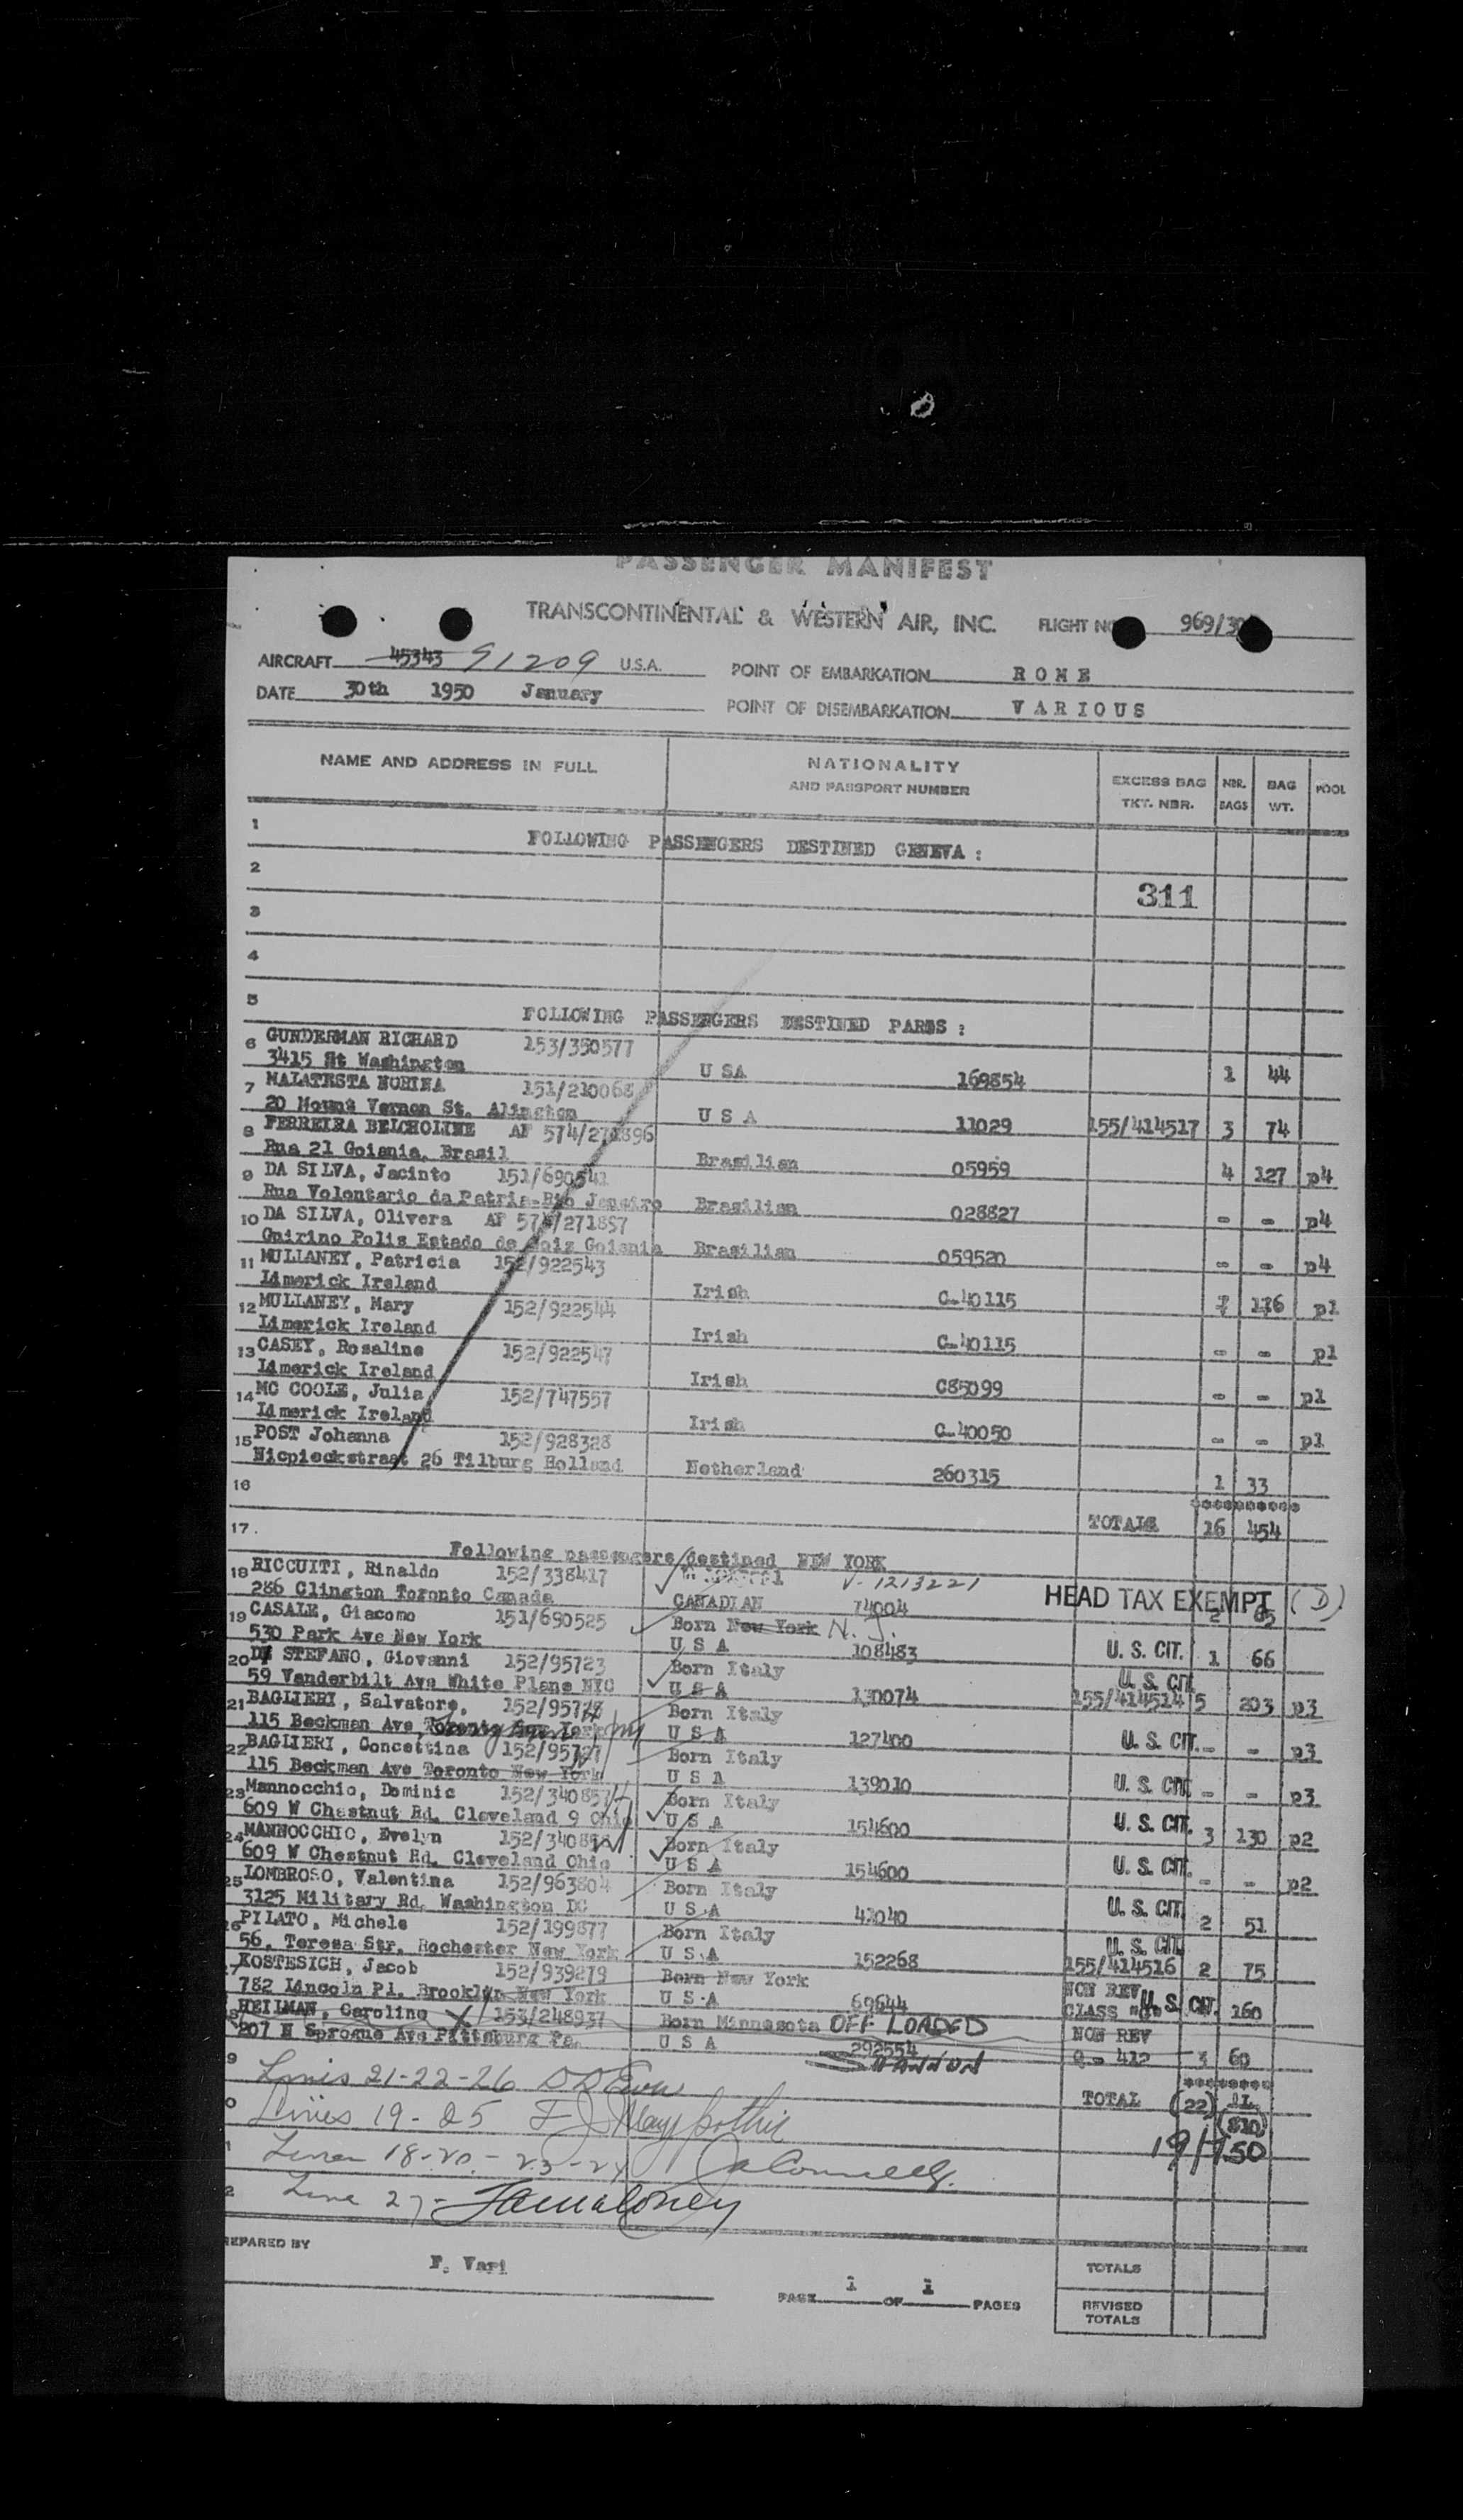 PASSENGER MANIFEST
TRANSCONTINENTAL & WESTERN AIR, INC. FLIGHT NO 969/30
AIRCRAFT 45343 91209 U.S.A. POINT OF EMBARKATION R O M E
DATE 30th 1950 January POINT OF DISEMBARKATION V A R I O U S
NAME AND ADDRESS IN FULL NATIONALITY AND PASSPORT NUMBER EXCESS BAG TKT. NBR. NBR. BAGS BAG WT. POOL
1 FOLLOWING PASSENGERS DESTINED GENEVA :
2 311
3
4
5 FOLLOWING PASSENGERS DESTINED PARIS :
6 GUNDERMAN RICHARD 153/350577
3415 St Washington U SA 169854 1 44
7 MALATESTA NORINA 151/210068
20 Mount Vernon St. Alington U S A 11029 155/414517 3 74
8 FERREIRA BELCHOLINE AF 574/271896
Rua 21 Goiania, Brasil Brasilian 05959 4 127 p4
9 DA SILVA, Jacinto 151/690541
Rua Volontario da Patria-Rio Janeiro Brasilian 028827 - - p4
10 DA SILVA, Olivera AF 574/271897
Goiania Brasilian 059520 - - p4
11 MULLANEY, Patricia 152/922543
Limerick Ireland Irish C-40115 7 176 p1
12 MULLANEY, Mary 152/922544
Limerick Ireland Irish C-40115 - - p1
13 CASEY, Rosaline 152/922547
Limerick Ireland Irish C85099 - - p1
14 MC COOLE, Julia 152/747557
Limerick Ireland Irish C-40050 - - p1
15 POST Johanna 152/928328
26 Tilburg Holland Netherland 260315 1 33
16 **********
TOTALS 16 454
17. Following passengers destined NEW YORK
18 RICCUITI, Rinaldo 152/338417 V-1213221
286 Clington Toronto Canada CANADIAN 74004 HEAD TAX EXEMPT (D) 2 65
19 CASALE, Giacomo 151/690525 Born New York N.J.
530 Park Ave New York U S A 108483 U. S. CIT. 1 66
20 DI STEFANO, Giovanni 152/95723 Born Italy U. S. CIT
59 Vanderbilt Ave White Plans NYC U S A 130074 155/414514 5 203 p3
21 BAGLIERI, Salvatore, Born Italy
115 Beckman Ave U S A 127400 U. S. CIT. - - p3
22 BAGLIERI, Concettina Born Italy
115 Beckman Ave Toronto New York U S A 139010 U. S. CIT. - - p3
23 Mannocchio, Dominic Born Italy
609 W Chestnut Rd. Cleveland 9 Ohio U S A 154600 U. S. CIT. 3 130 p2
24 MANNOCCHIO, Evelyn Born Italy
609 W Chestnut Rd. Cleveland Ohio U S A 154600 U. S. CIT. - - p2
25 LOMBROSO, Valentina 152/963804 Born Italy
3125 Military Rd. Washington DC U S A 43040 U. S. CIT 2 51
26 PILATO, Michele 152/199877 Born Italy U. S. CIT.
56, Teresa Str. Rochester New York U S A 152268 155/414516 2 75
27 KOSTESICH, Jacob 152/939279 Born New York NON REV
782 Lincoln Pl. Brooklyn New York U S A 69644 CLASS U. S. CIT. 160
28 HEILMAN, Caroline X 153/248937 Born Minnesota OFF LOADED NON REV
207 N Sprogue Ave Pittsburg Pa. U S A 292554 SHANNON Q - 412 3 60
9 Lines 21-22-26 ********
TOTAL (22) (810)
0 Lines 19-25
19/750
1 Lines 18-20-23-24
2 Line 27-
PREPARED BY F. Vari TOTALS
PAGE 1 OF 1 PAGES
REVISED TOTALS